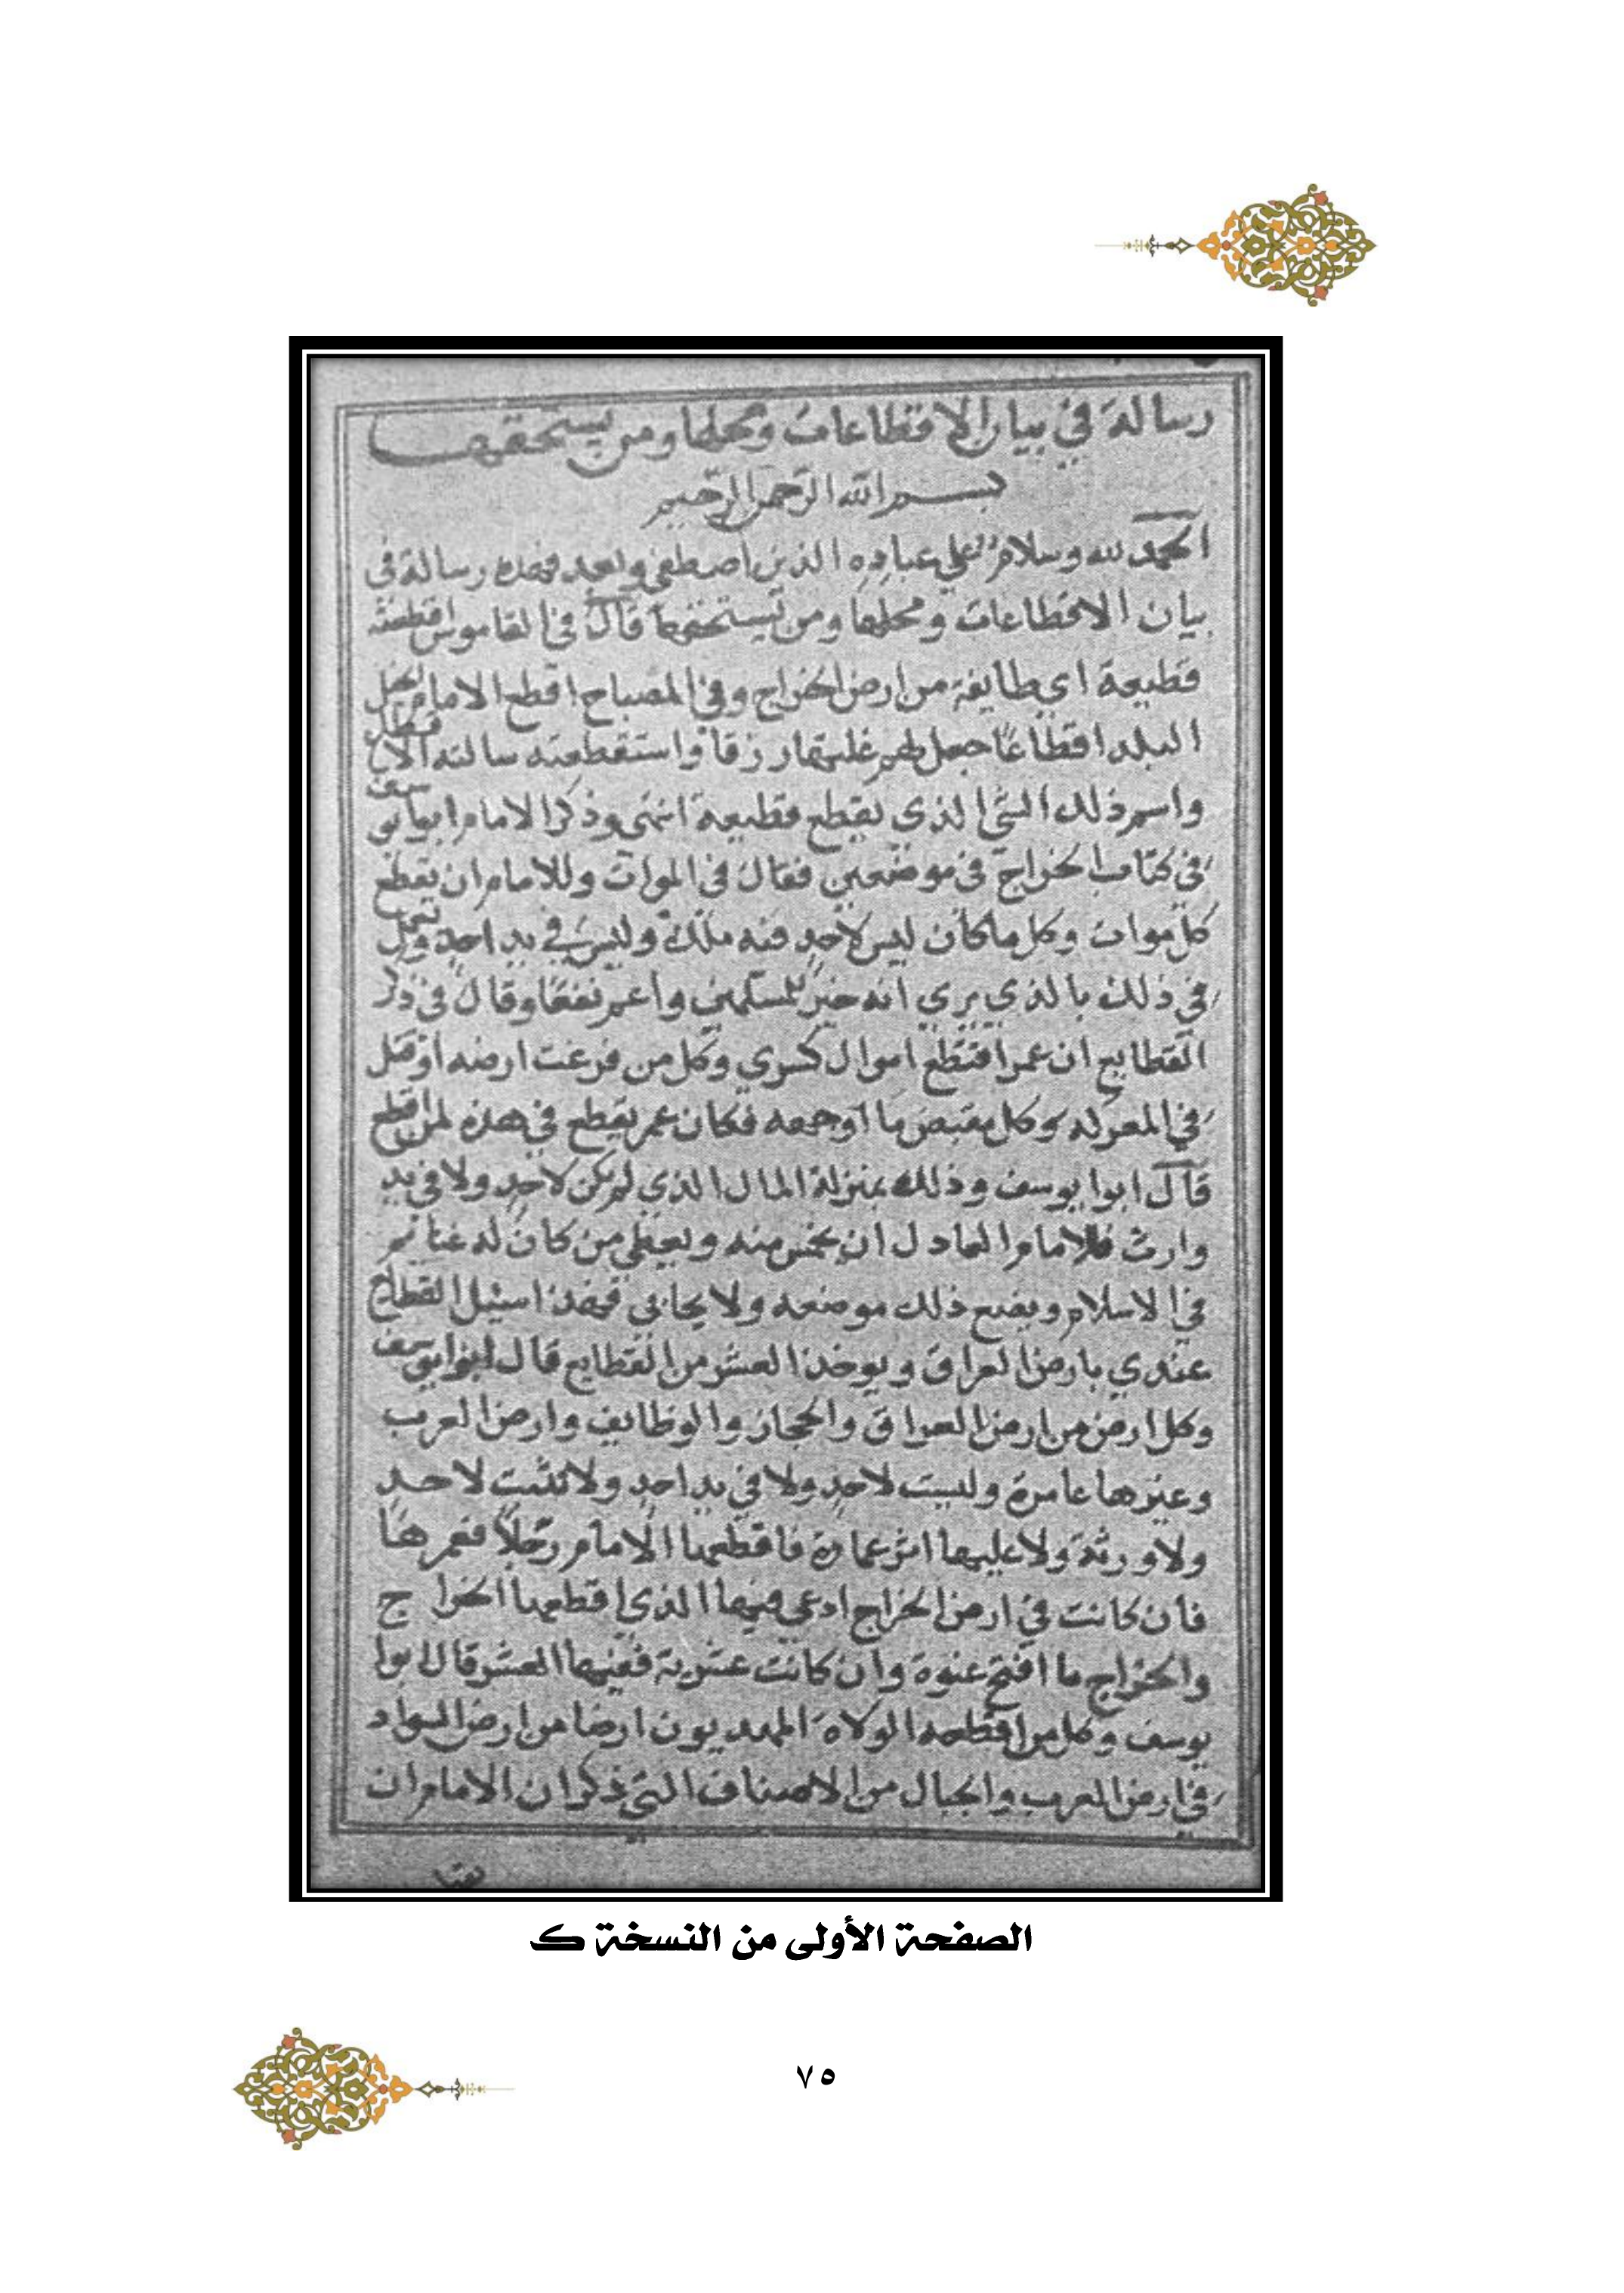 رسالة في بيان الاقطاعات ومحلها ومن يستحقها
بسم الله الرحمن الرحيم
الحمد لله وسلام على عباده الذين اصطفى وبعد فهذه رسالة في
بيان الاقطاعات ومحلها ومن يستحقها قال في القاموس اقطعته
قطيعة اي طايفة من ارض الخراج وفي المصباح اقطع الامام
البلد اقطاعا جعل لهم غلتها رزقا واستقطعته سالته الاقطاع
واسم ذلك الشي الذي يقطع قطيعة انتهى وذكر الامام ابوا يوسف
في كتاب الخراج في موضعين فقال في الموات وللامام ان يقطع
كل موات وكل ما كان ليس لاحد فيه ملك وليس في يد احد ويعمل
في ذلك بالذي يرى انه خير للمسلمين واعم نفعا وقال في ذكر
القطايع ان عمر اقتطع اموال كسري وكل من فرعت ارضه او قتل
في المعركه وكل مغيض ما او جمعه فكان عمر يقطع في هذه لمن اقطع
قال ابوا يوسف وذلك بمنزلة المال الذي لم يكن لاحد ولا في يد
وارث فللامام العادل ان يخمس منه ويعطي من كان له غنا
في الاسلام ويضع ذلك موضعه ولا يحابي فهذا سبيل القطايع
عندي بارض العراق ويوخذ العشر من القطايع قال ابوا يوسف
وكل ارض من ارض العراق والحجاز والوظائف وارض العرب
وغيرها عامرة وليست لاحد ولا في يد احد ولا تثبت لاحد
ولا ورثة ولا عليها اثر عمارة فاقطعها الامام رجلا فعمرها
فان كانت في ارض الخراج ادعى فيها الذي اقطعها الخراج
والخراج ما افتتح عنوة وان كانت عشرية ففيها العشر قال ابوا
يوسف وكل من اقطعه الولاة المهديون ارضا من ارض السواد
في ارض العرب والجبال من الاصناف التي ذكر ان الامام ان
الصفحة الأولى من النسخة ك
٧٥